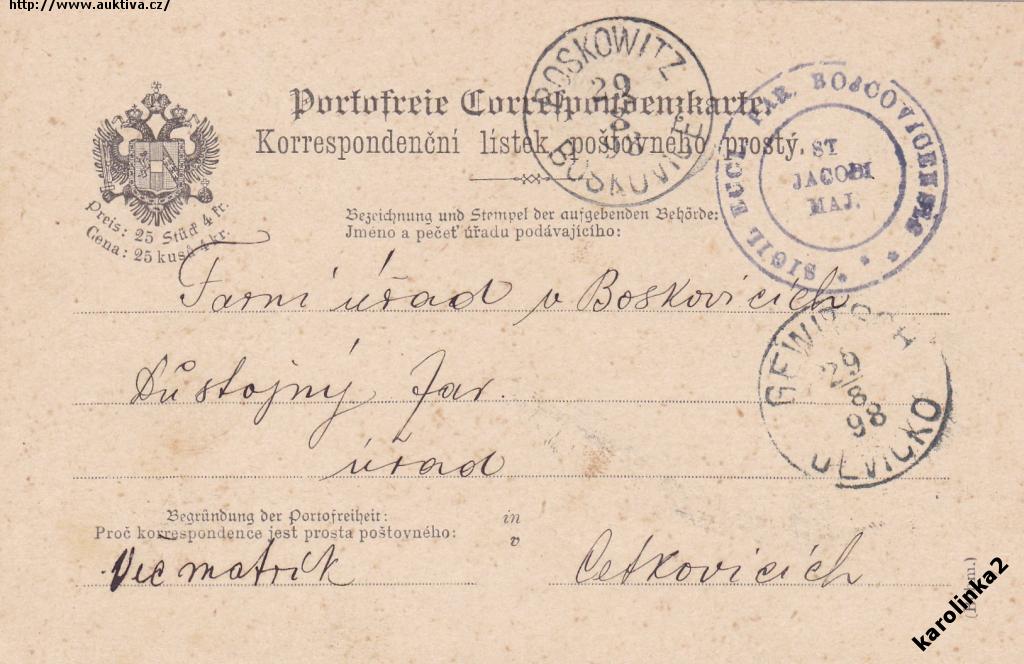 http://www.auktiva.cz/
BOSKOWITZ
29
8
98
BOSKOVICE
Portofreie Correspondenzkarte.
Korrespondenční lístek poštovného prostý.
SIGIL ECCL PAR. BOSCOVICENSIS
ST
JACOBI
MAJ.
Preis: 25 Stück 4 kr.
Cena: 25 kusů 4 kr.
Bezeichnung und Stempel der aufgebenden Behörde:
Jméno a pečeť úřadu podávajícího:
Farní úřad v Boskovicích
Důstojný far.
úřad
GEWITSCH
29/8
98
JEVICKO
Begründung der Portofreiheit:
Proč korrespondence jest prosta poštovného:
in
v
Věc matrik
Cetkovicích
karolinka2